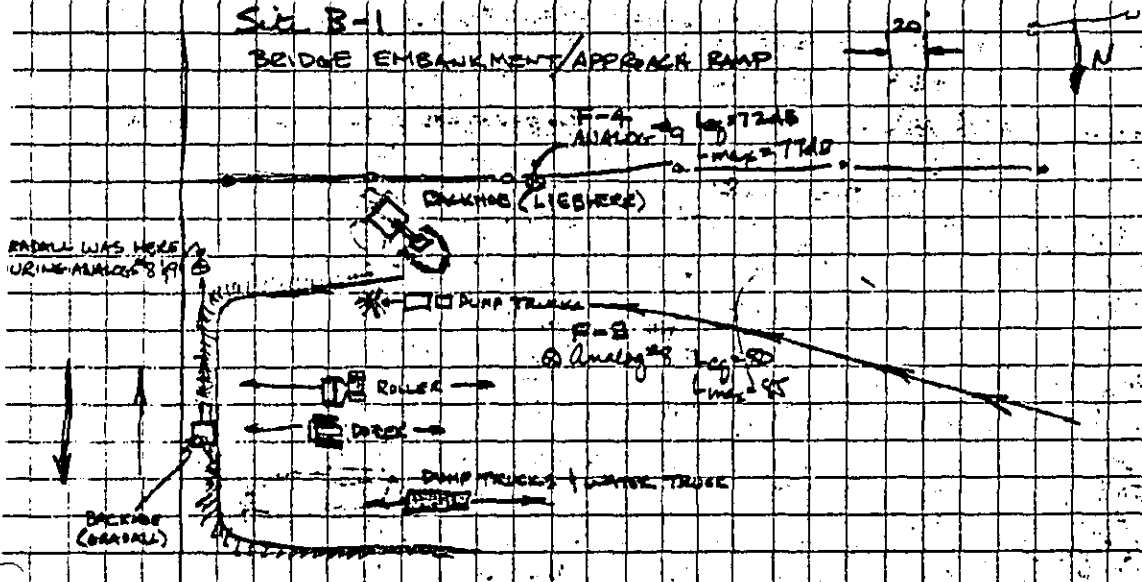 Site B-1
BRIDGE EMBANKMENT/APPROACH RAMP
20'
N
F-4
ANALOG #9 Leq=72dB
Lmax=77dB
BACKHOE (LIEBHERR)
RADALL WAS HERE
URING ANALOGS 8 & 9
DUMP TRUCKS
F-8
Analog #8 Leq=80
Lmax=85
ROLLER
DOZER
DUMP TRUCKS + WATER TRUCK
BACKHOE
(GRADALL)